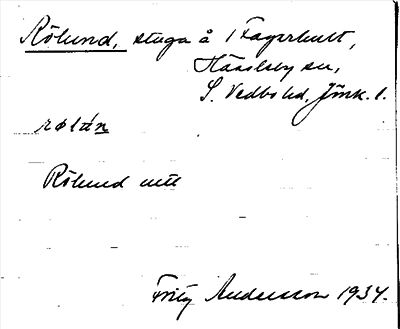 Rölund, stuga å 1 Fagerhult,
Hässleby sn,
S. Vedbo hd, Jönk. l.
rølán
Rölund
Fritz Andersson 1934.